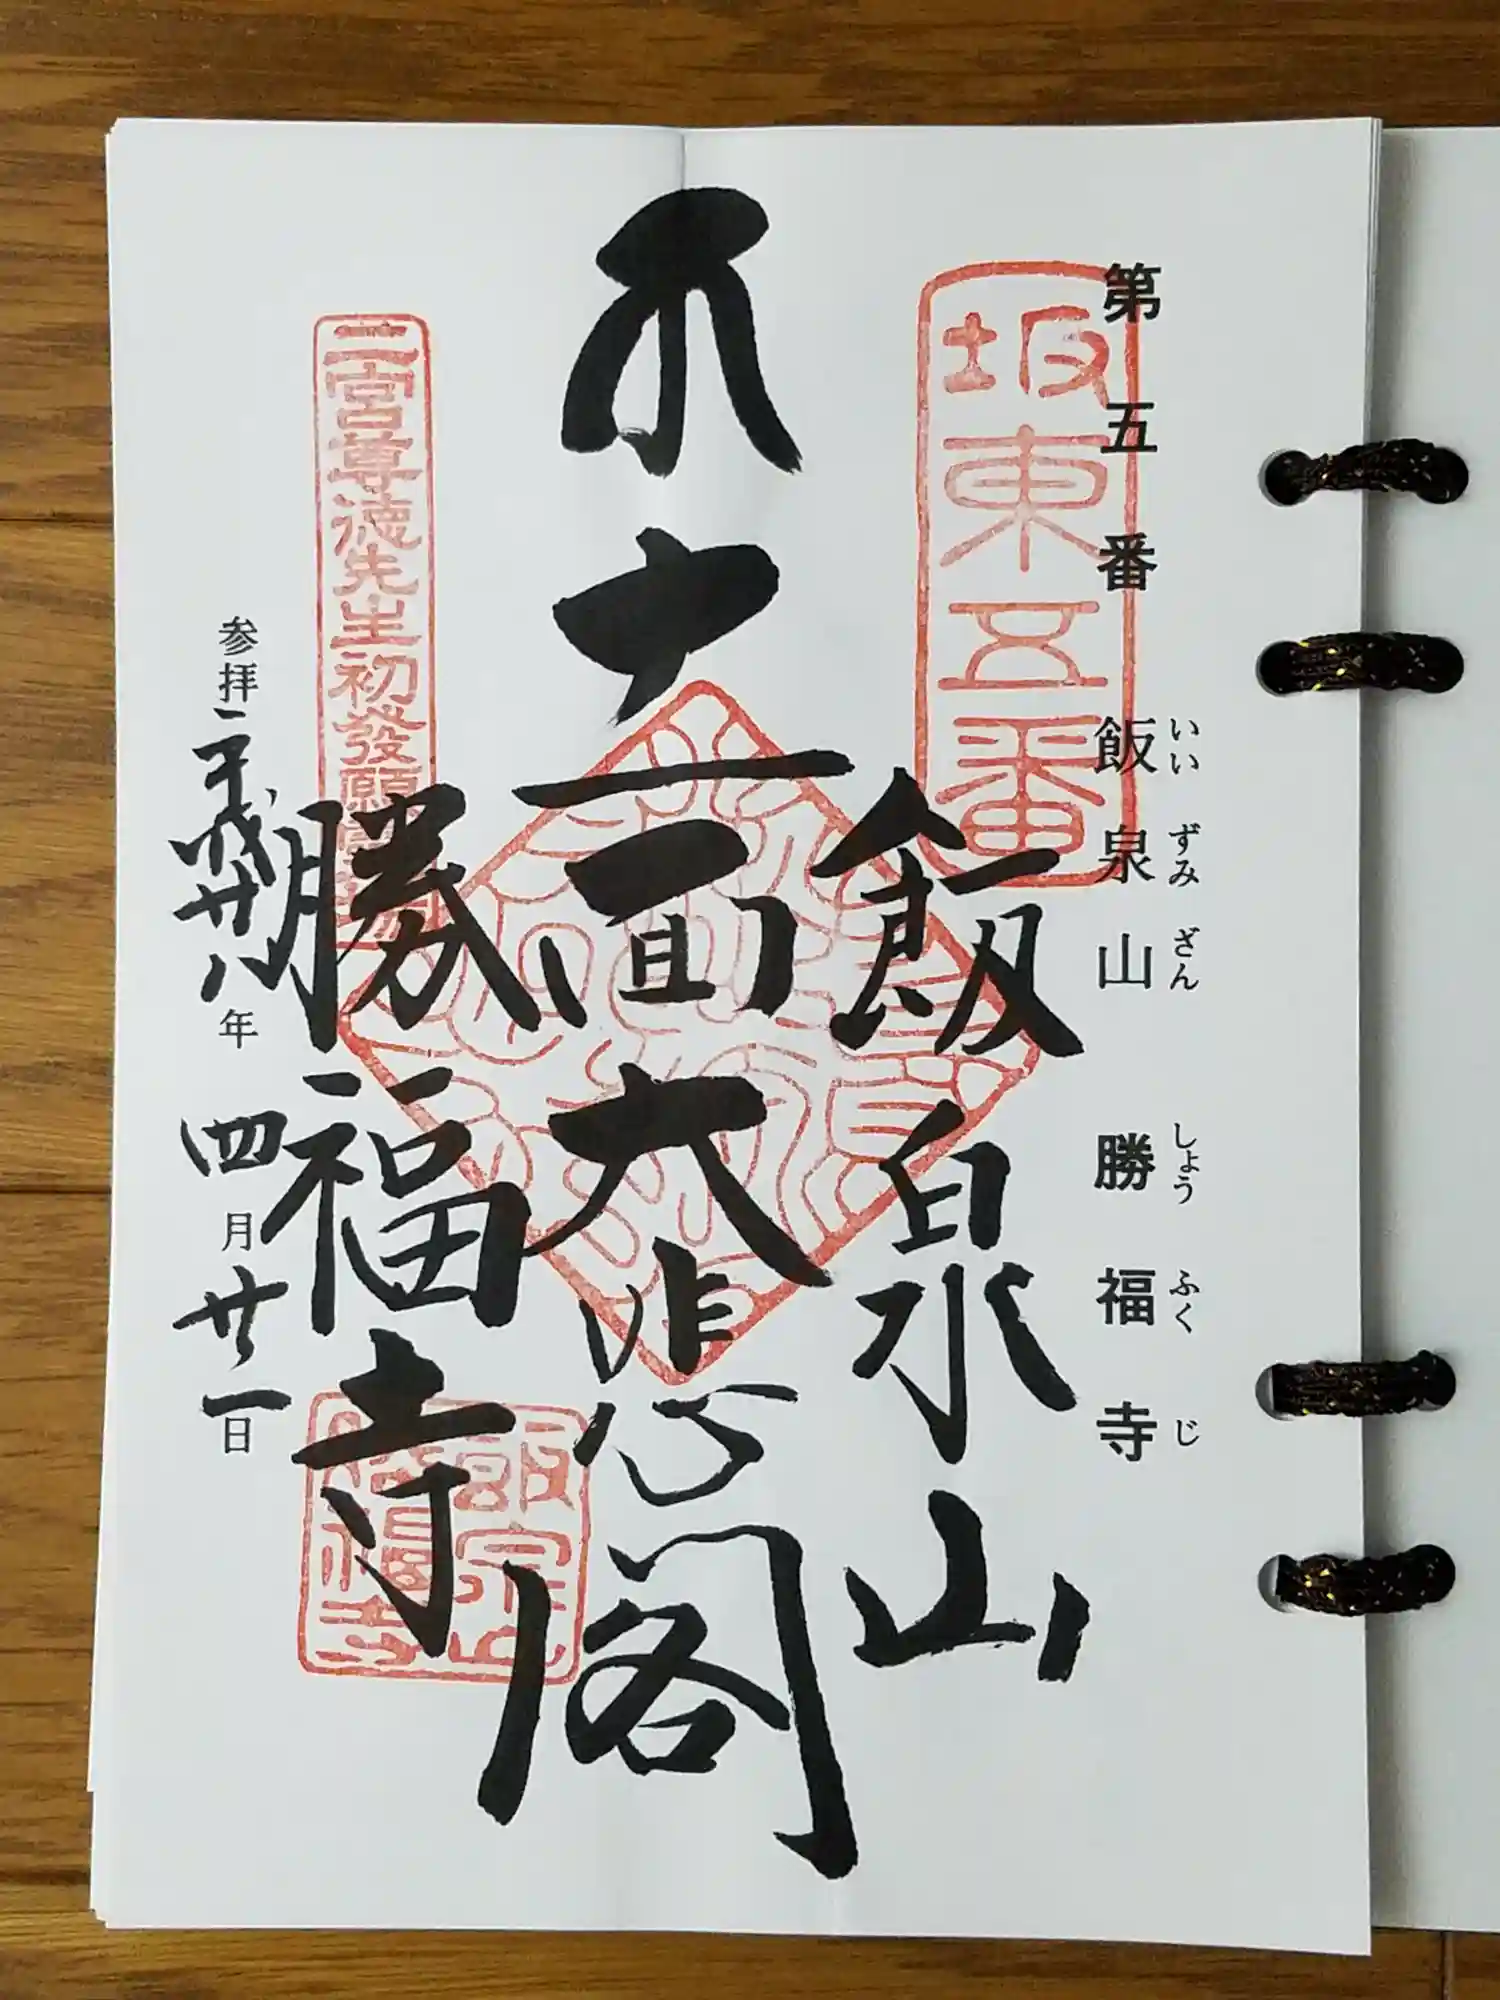 第五番 飯泉山 勝福寺
いいずみざん しょうふくじ
坂東五番
飯泉山
十一面大悲閣
勝福寺
二宮尊徳先生初發願
飯泉山
勝福寺
参拝 平成廿八年 四月廿一日